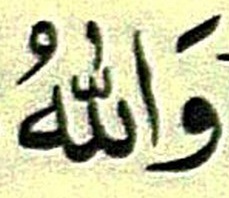 وَاللّٰهُ